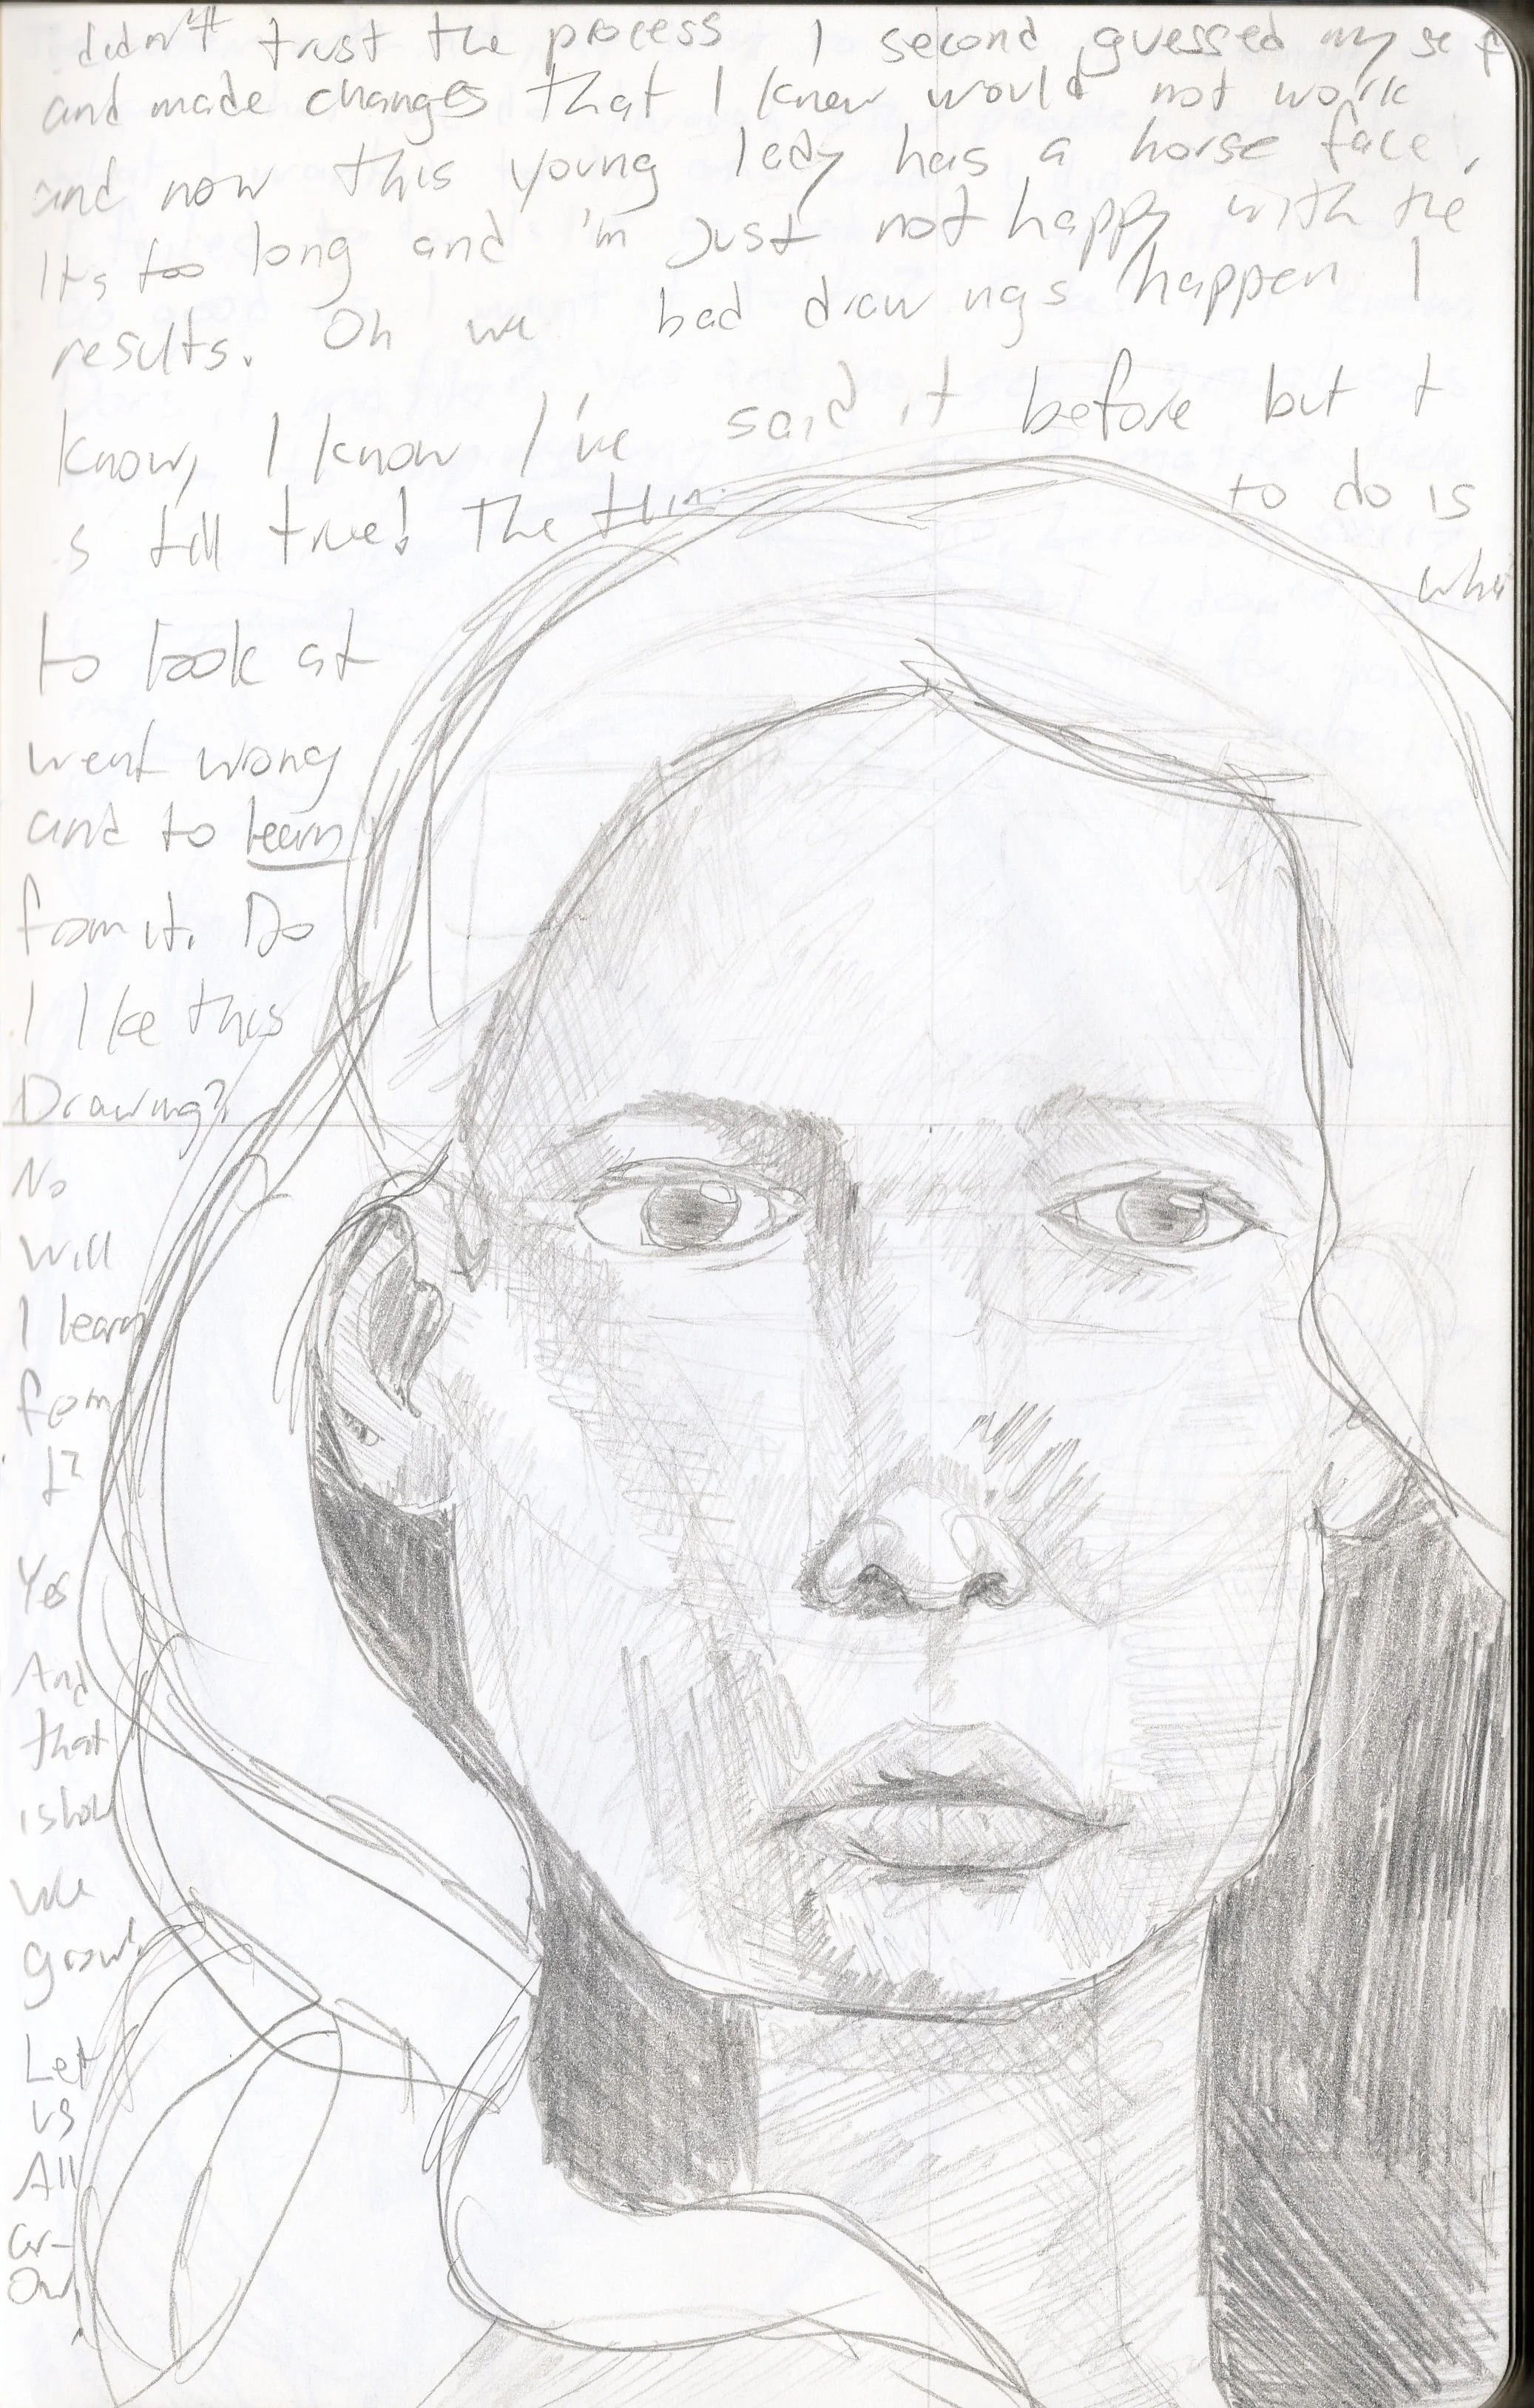 didn't trust the process I second guessed my self
and made changes that I knew would not work
and now this young lady has a horse face,
Its too long and 'm Just not happy with the
results. Oh we bad drawings happen I
know, I know I've said it before but t
s still true! The thin to do is
to look at wha
went wrong
and to learn
from it. Do
I like this
Drawing?
No
Will
I learn
from
it?
Yes
And
that
is how
we
grow!
Let
us
All
Gr-
ow